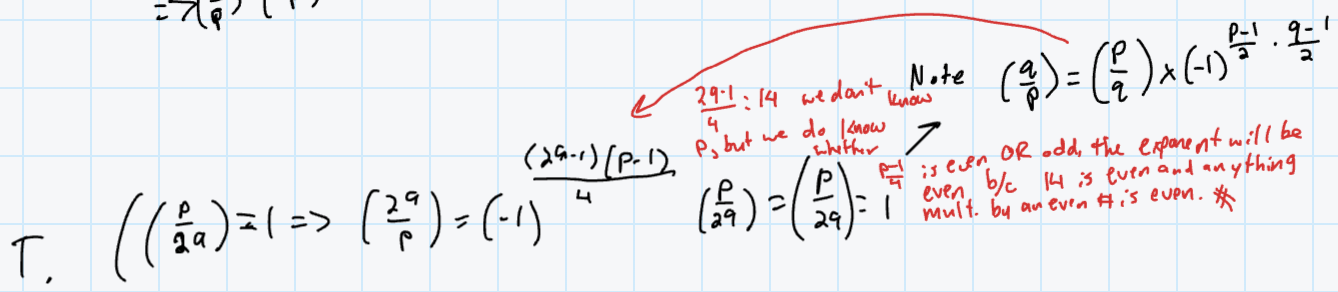 => (   /p) (
Note (q/p) = (p/q) × (-1)^(p-1)/2 · (q-1)/2
(29-1)/4 : 14 we don't know
p, but we do know
whether
(p-1)/4 is even OR odd, the exponent will be
even b/c 14 is even and anything
mult. by an even # is even. *
T. ((p/29) = 1 => (29/p) = (-1)^((29-1)(p-1)/4) (p/29) = (p/29) = 1